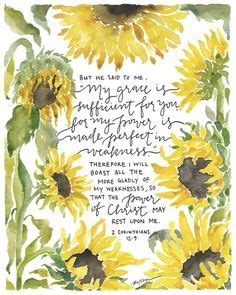 BUT HE SAID TO ME,
"My grace is
sufficient for you
for my power is
made perfect in
weakness."
THEREFORE I WILL
BOAST ALL THE
MORE GLADLY OF
MY WEAKNESSES, SO
THAT THE power
of Christ MAY
REST UPON ME.
2 CORINTHIANS
12:9